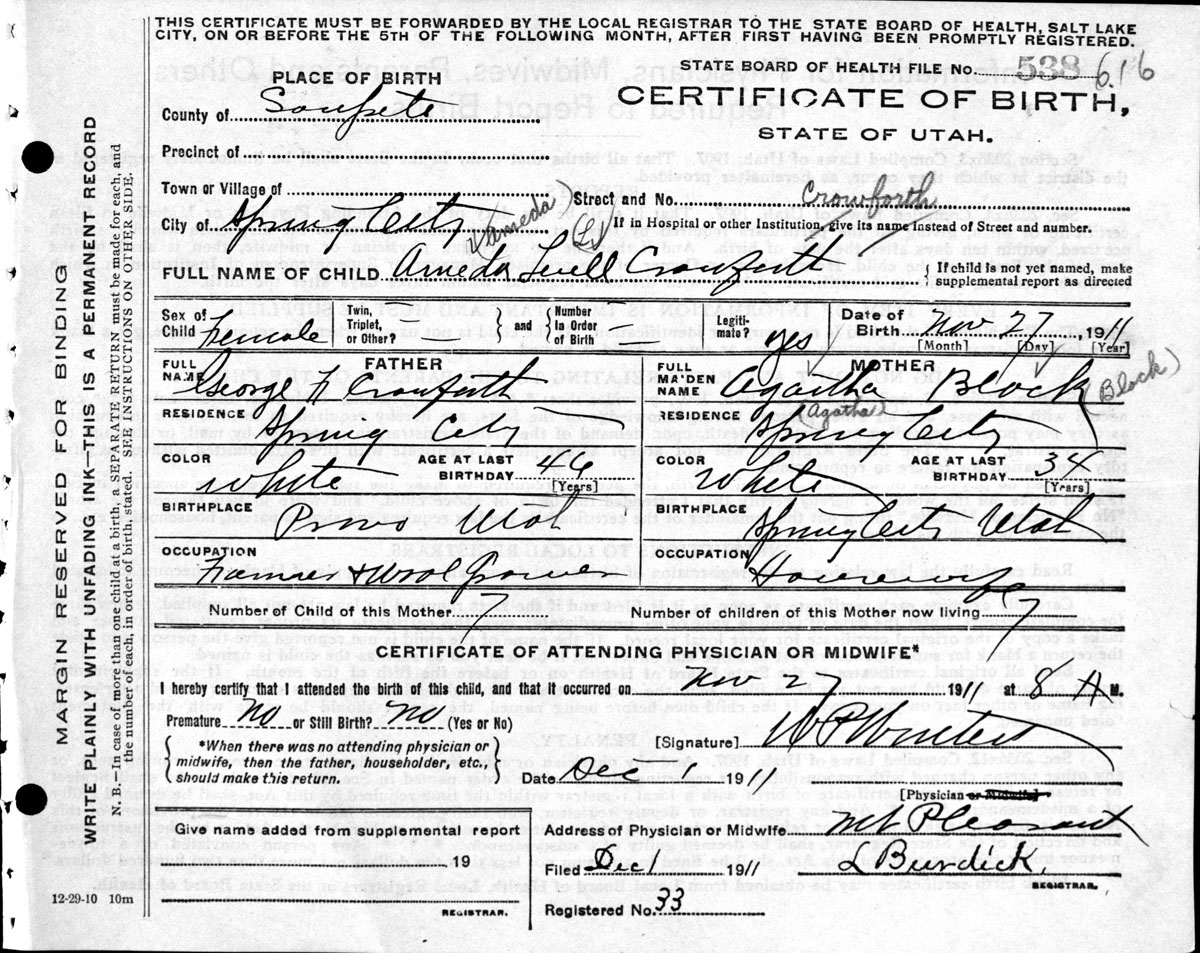 THIS CERTIFICATE MUST BE FORWARDED BY THE LOCAL REGISTRAR TO THE STATE BOARD OF HEALTH, SALT LAKE
CITY, ON OR BEFORE THE 5TH OF THE FOLLOWING MONTH, AFTER FIRST HAVING BEEN PROMPTLY REGISTERED.
STATE BOARD OF HEALTH FILE No. 538 616
PLACE OF BIRTH
CERTIFICATE OF BIRTH,
STATE OF UTAH.
County of Sanpete
Precinct of
Town or Village of Street and No.
Crowforth
City of Spring City
(Ameda) (L)
If in a Hospital or other Institution, give its name instead of Street and number.
FULL NAME OF CHILD Ameda Levell Crowforth
{ If child is not yet named, make
supplemental report as directed
Sex of Child Female
Twin, Triplet, or Other? —
and
Number in Order of Birth —
Legitimate? yes
Date of Birth Nov. 27, 1911
[Month] [Day] [Year]
FATHER
FULL NAME George F Crowforth
RESIDENCE Spring City
COLOR White
AGE AT LAST BIRTHDAY 46
[Years]
BIRTHPLACE Provo Utah
OCCUPATION Farmer & Wool Grower
MOTHER
FULL MAIDEN NAME Agatha Block (Block)
(Agatha)
RESIDENCE Spring City
COLOR White
AGE AT LAST BIRTHDAY
[Years]
BIRTHPLACE Spring City Utah
OCCUPATION Housewife
Number of Child of this Mother 7
Number of children of this Mother now living 7
CERTIFICATE OF ATTENDING PHYSICIAN OR MIDWIFE*
I hereby certify that I attended the birth of this child, and that it occurred on Nov 27 1911, 8 A M.
Premature No or Still Birth? No (Yes or No)
*When there was no attending physician or
midwife, then the father, householder, etc.,
should make this return.
[Signature]
Date Dec 1 1911
[Physician or Midwife]
Give name added from supplemental report
19
REGISTRAR.
Address of Physician or Midwife Mt Pleasant
Filed Dec 1 1911 L Burdick,
REGISTRAR.
Registered No. 33
12-29-10 10m
MARGIN RESERVED FOR BINDING
WRITE PLAINLY WITH UNFADING INK—THIS IS A PERMANENT RECORD
N. B.—In case of more than one child at a birth, a SEPARATE RETURN must be made for each, and
the number of each, in order of birth, stated. (SEE INSTRUCTIONS ON OTHER SIDE.